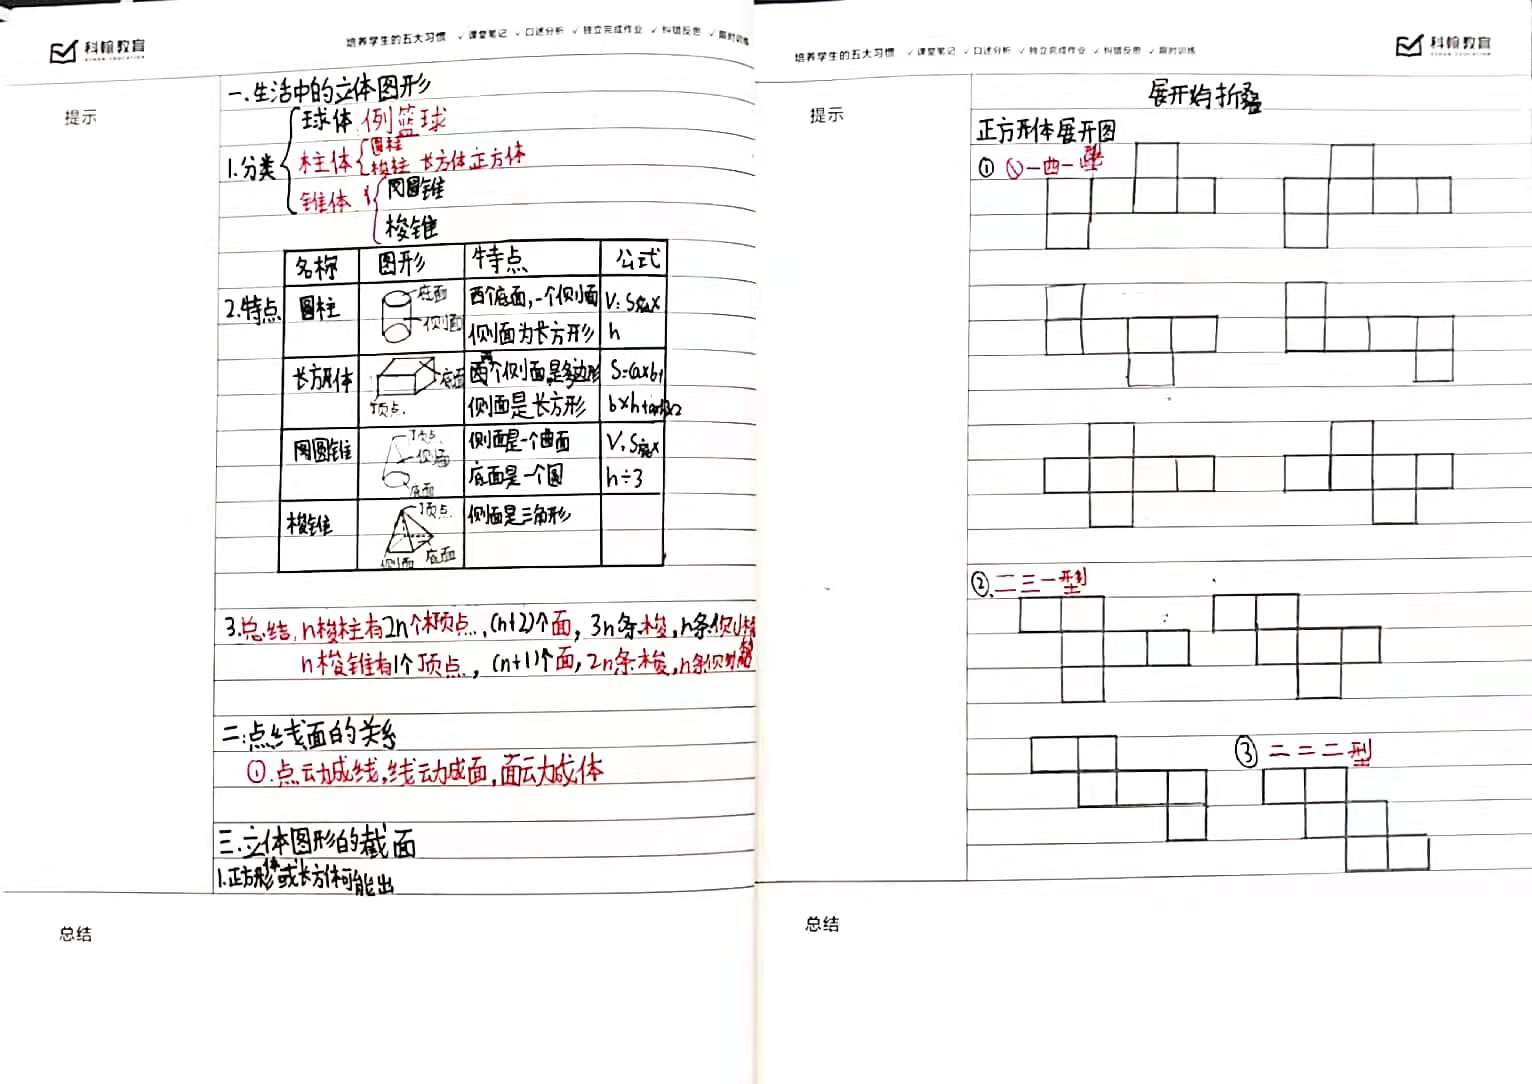 科翰教育
培养学生的五大习惯 ✓课堂笔记 ✓口述分析 ✓独立完成作业 ✓纠错反思 ✓限时训练
提示
一.生活中的立体图形
1.分类
球体 例篮球
柱体 圆柱
棱柱 长方体正方体
锥体 圆锥
棱锥
2.特点
名称 图形 特点 公式
圆柱 底面 侧面 两个底面,一个侧面 侧面为长方形 V:S底x h
长方形体 底面 顶点. 两个侧面是多边形 侧面是长方形 S=(axb+ bxh+
圆锥 顶点 侧面 底面 侧面是一个曲面 底面是一个圆 V,S底x h÷3
棱锥 顶点. 侧面 底面 侧面是三角形
3.总结,n棱柱有2n个顶点,(n+2)个面,3n条棱,n条侧棱
n棱锥有1个顶点,(n+1)个面,2n条棱,n条侧棱
二.点线面的关系
①.点动成线,线动成面,面动成体
三.立体图形的截面
1.正方形体或长方体可能出
总结
科翰教育
培养学生的五大习惯 ✓课堂笔记 ✓口述分析 ✓独立完成作业 ✓纠错反思 ✓限时训练
提示
展开与折叠
正方形体展开图
① 一四一型
②.二三一型
③ 二二二型
总结